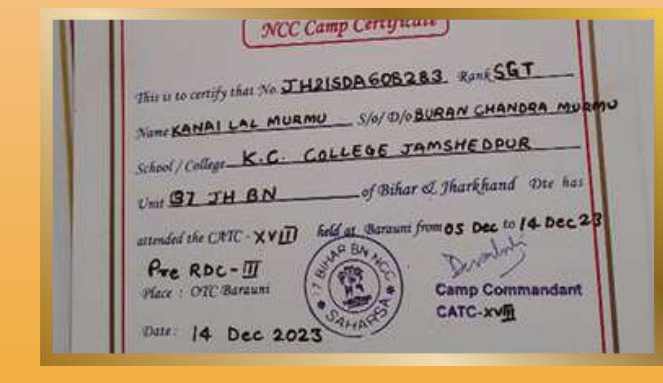 NCC Camp Certificate
This is to certify that No. JH21SDA608283 Rank SGT
Name KANAI LAL MURMU S/o/ D/o BURAN CHANDRA MURMU
School / College K.C. COLLEGE JAMSHEDPUR
Unit 37 JH BN of Bihar & Jharkhand Dte has
attended the CATC - XVIII held at Barauni from 05 Dec to 14 Dec 23
Pre RDC - II
Place : OTC Barauni
17 BIHAR BN NCC
SAHARSA
Camp Commandant
CATC-XVIII
Date : 14 Dec 2023